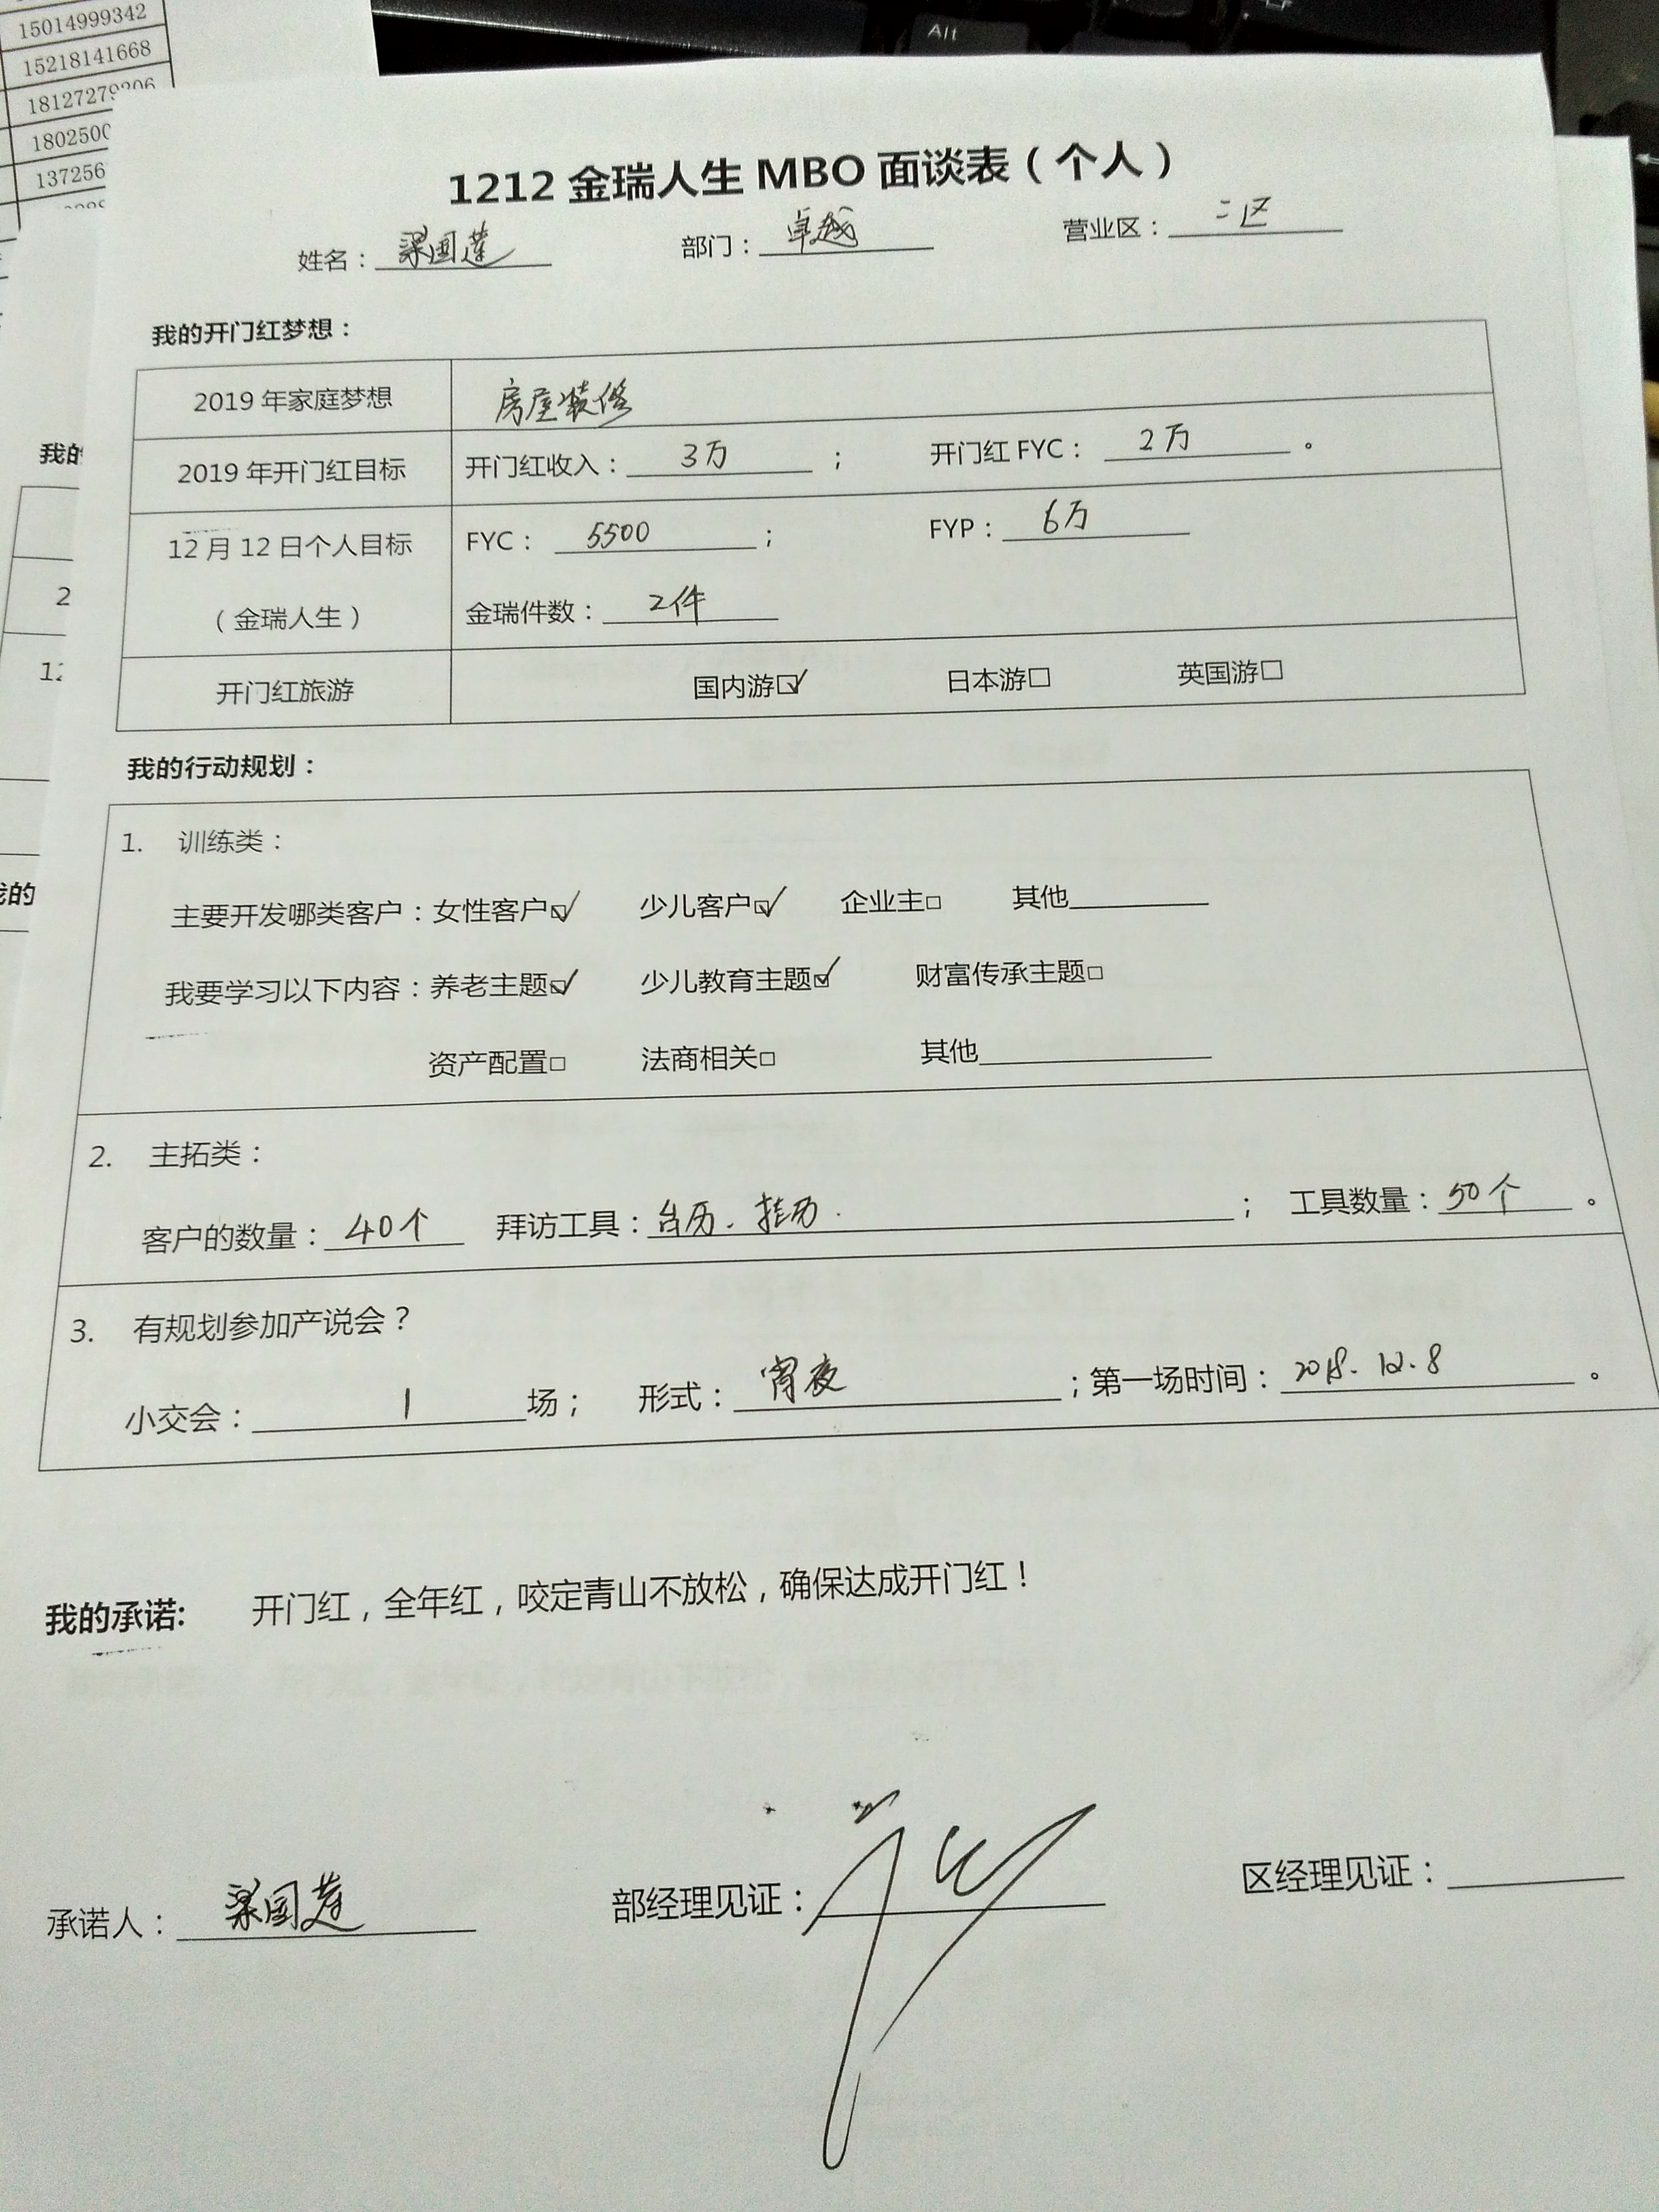 15014999342
15218141668
1802500
137256
Alt
1212 金瑞人生 MBO 面谈表（个人）
姓名：梁国莲 部门：卓越 营业区：二区
我的开门红梦想：
2019 年家庭梦想 房屋装修
2019 年开门红目标 开门红收入：3万； 开门红 FYC：2万。
12 月 12 日个人目标 FYC：5500； FYP：6万
（金瑞人生） 金瑞件数：2件
开门红旅游 国内游☑ 日本游□ 英国游□
我的行动规划：
1. 训练类：
主要开发哪类客户：女性客户☑ 少儿客户☑ 企业主□ 其他
我要学习以下内容：养老主题☑ 少儿教育主题☑ 财富传承主题□
资产配置□ 法商相关□ 其他
2. 主拓类：
客户的数量：40个 拜访工具：台历、挂历； 工具数量：50个。
3. 有规划参加产说会？
小交会：1场； 形式：宵夜；第一场时间：2018.12.8。
我的承诺: 开门红，全年红，咬定青山不放松，确保达成开门红！
承诺人：梁国莲 部经理见证： 区经理见证：